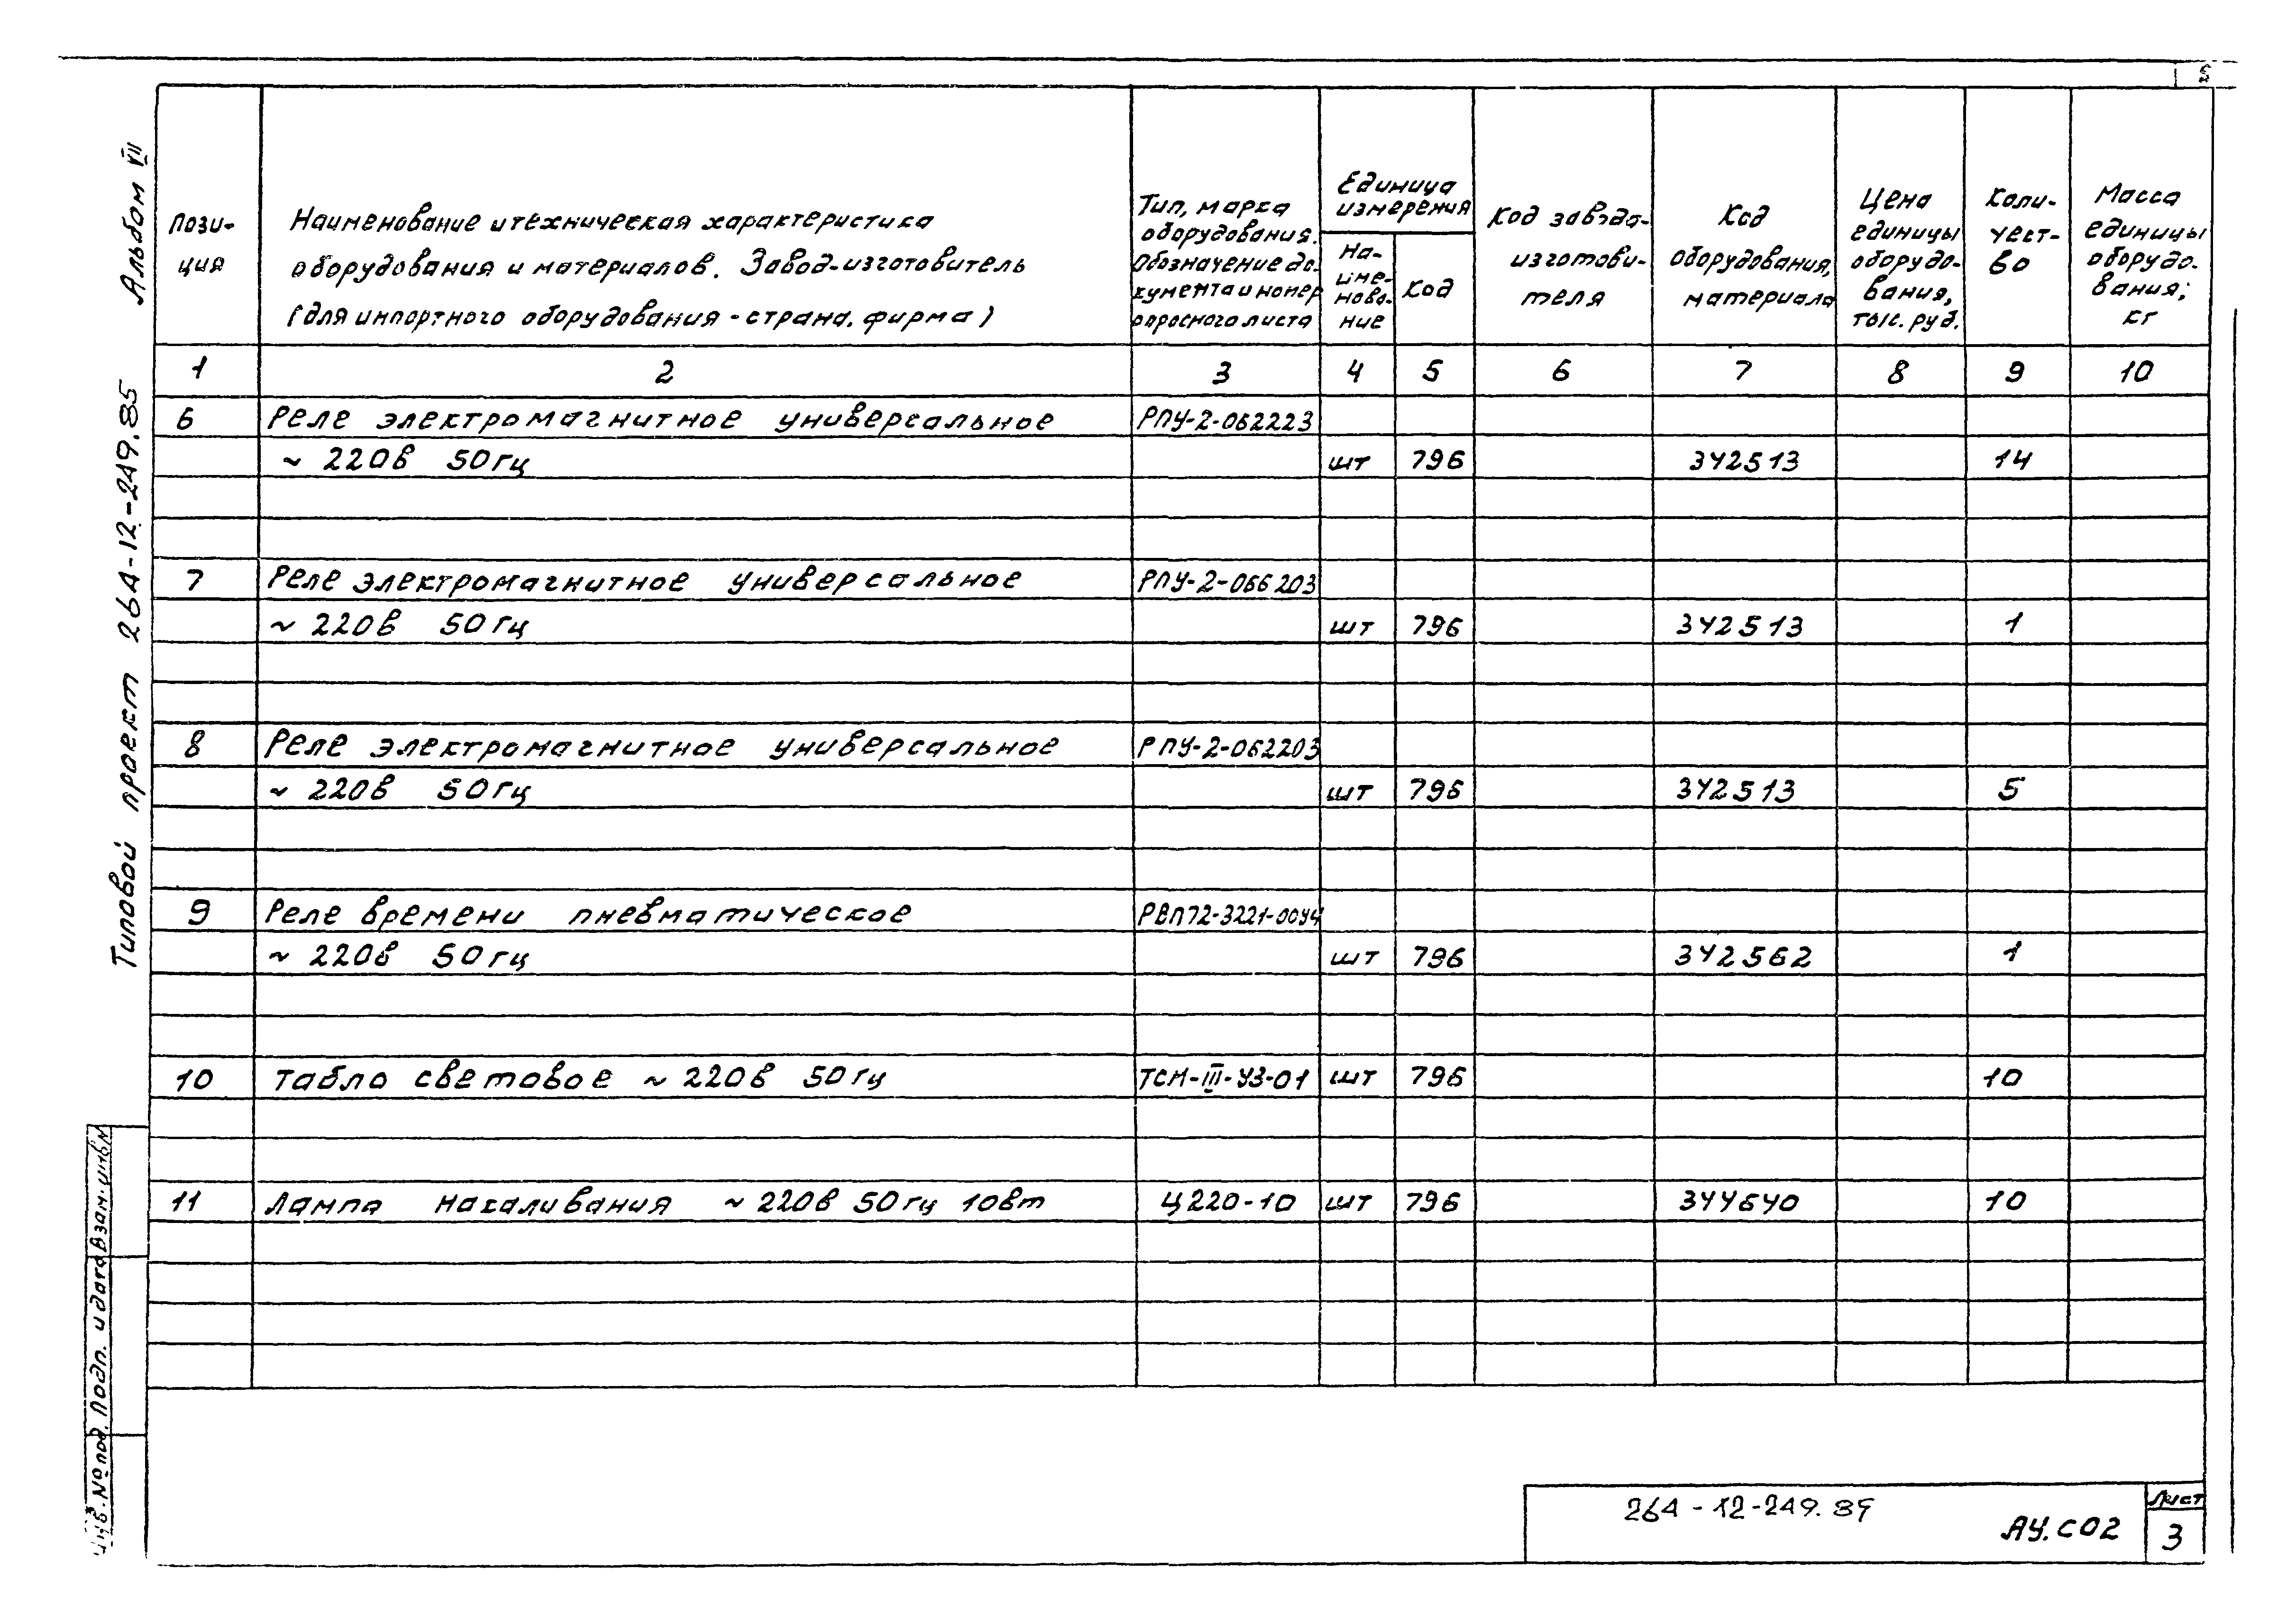 5
Альбом VII
Типовой проект 264-12-249.85
Пози-
ция
Наименование и техническая характеристика
оборудования и материалов. Завод-изготовитель
(для импортного оборудования - страна, фирма)
Тип, марка
оборудования.
Обозначение до-
кумента и номер
опросного листа
Единица
измерения
На-
име-
нова-
ние
Код
Код завода-
изготови-
теля
Код
оборудования,
материала
Цена
единицы
оборудо-
вания,
тыс. руб.
Коли-
чест-
во
Масса
единицы
оборудо-
вания;
кг
1 2 3 4 5 6 7 8 9 10
6 Реле электромагнитное универсальное РПУ-2-062223
~ 220в 50гц шт 796 342513 14
7 Реле электромагнитное универсальное РПУ-2-066203
~ 220в 50гц шт 796 342513 1
8 Реле электромагнитное универсальное РПУ-2-062203
~ 220в 50гц шт 796 342513 5
9 Реле времени пневматическое РВП72-3221-00У4
~ 220в 50гц шт 796 342562 1
10 Табло световое ~ 220в 50гц ТСМ-III-У3-01 шт 796 10
11 Лампа накаливания ~ 220в 50гц 10вт Ц220-10 шт 796 344640 10
Инв. № подл. Подп. и дата Взам. инв. №
264-12-249.85
АУ.С02
Лист
3